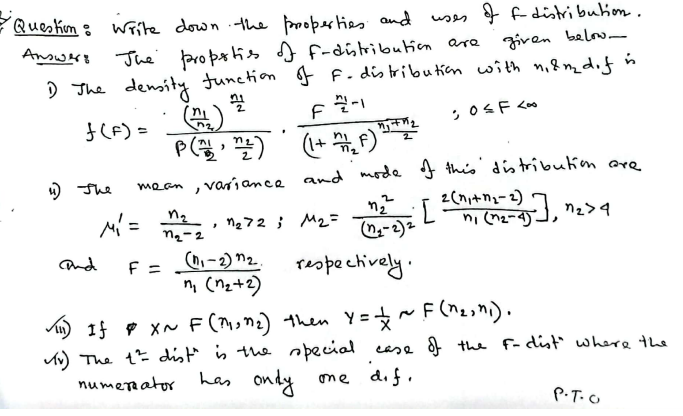 Question : Write down the properties and uses of F-distribution.
Answer : The properties of F-distribution are given below—
i) The density function of F-distribution with n₁ & n₂ d.f is
f(F) = (n₁/n₂)^(n₁/2) / β(n₁/2, n₂/2) · F^(n₁/2 - 1) / (1 + n₁/n₂ F)^((n₁+n₂)/2) ; 0 ≤ F < ∞
ii) The mean, variance and mode of this distribution are
μ₁' = n₂/(n₂-2), n₂>2 ; μ₂ = n₂²/(n₂-2)² [2(n₁+n₂-2)/(n₁(n₂-4))], n₂>4
and F = (n₁-2)n₂/(n₁(n₂+2)) respectively.
iii) If X~F(n₁,n₂) then Y = 1/X ~ F(n₂,n₁).
iv) The t²- distⁿ is the special case of the F-distⁿ where the
numerator has only one d.f.
P.T.O